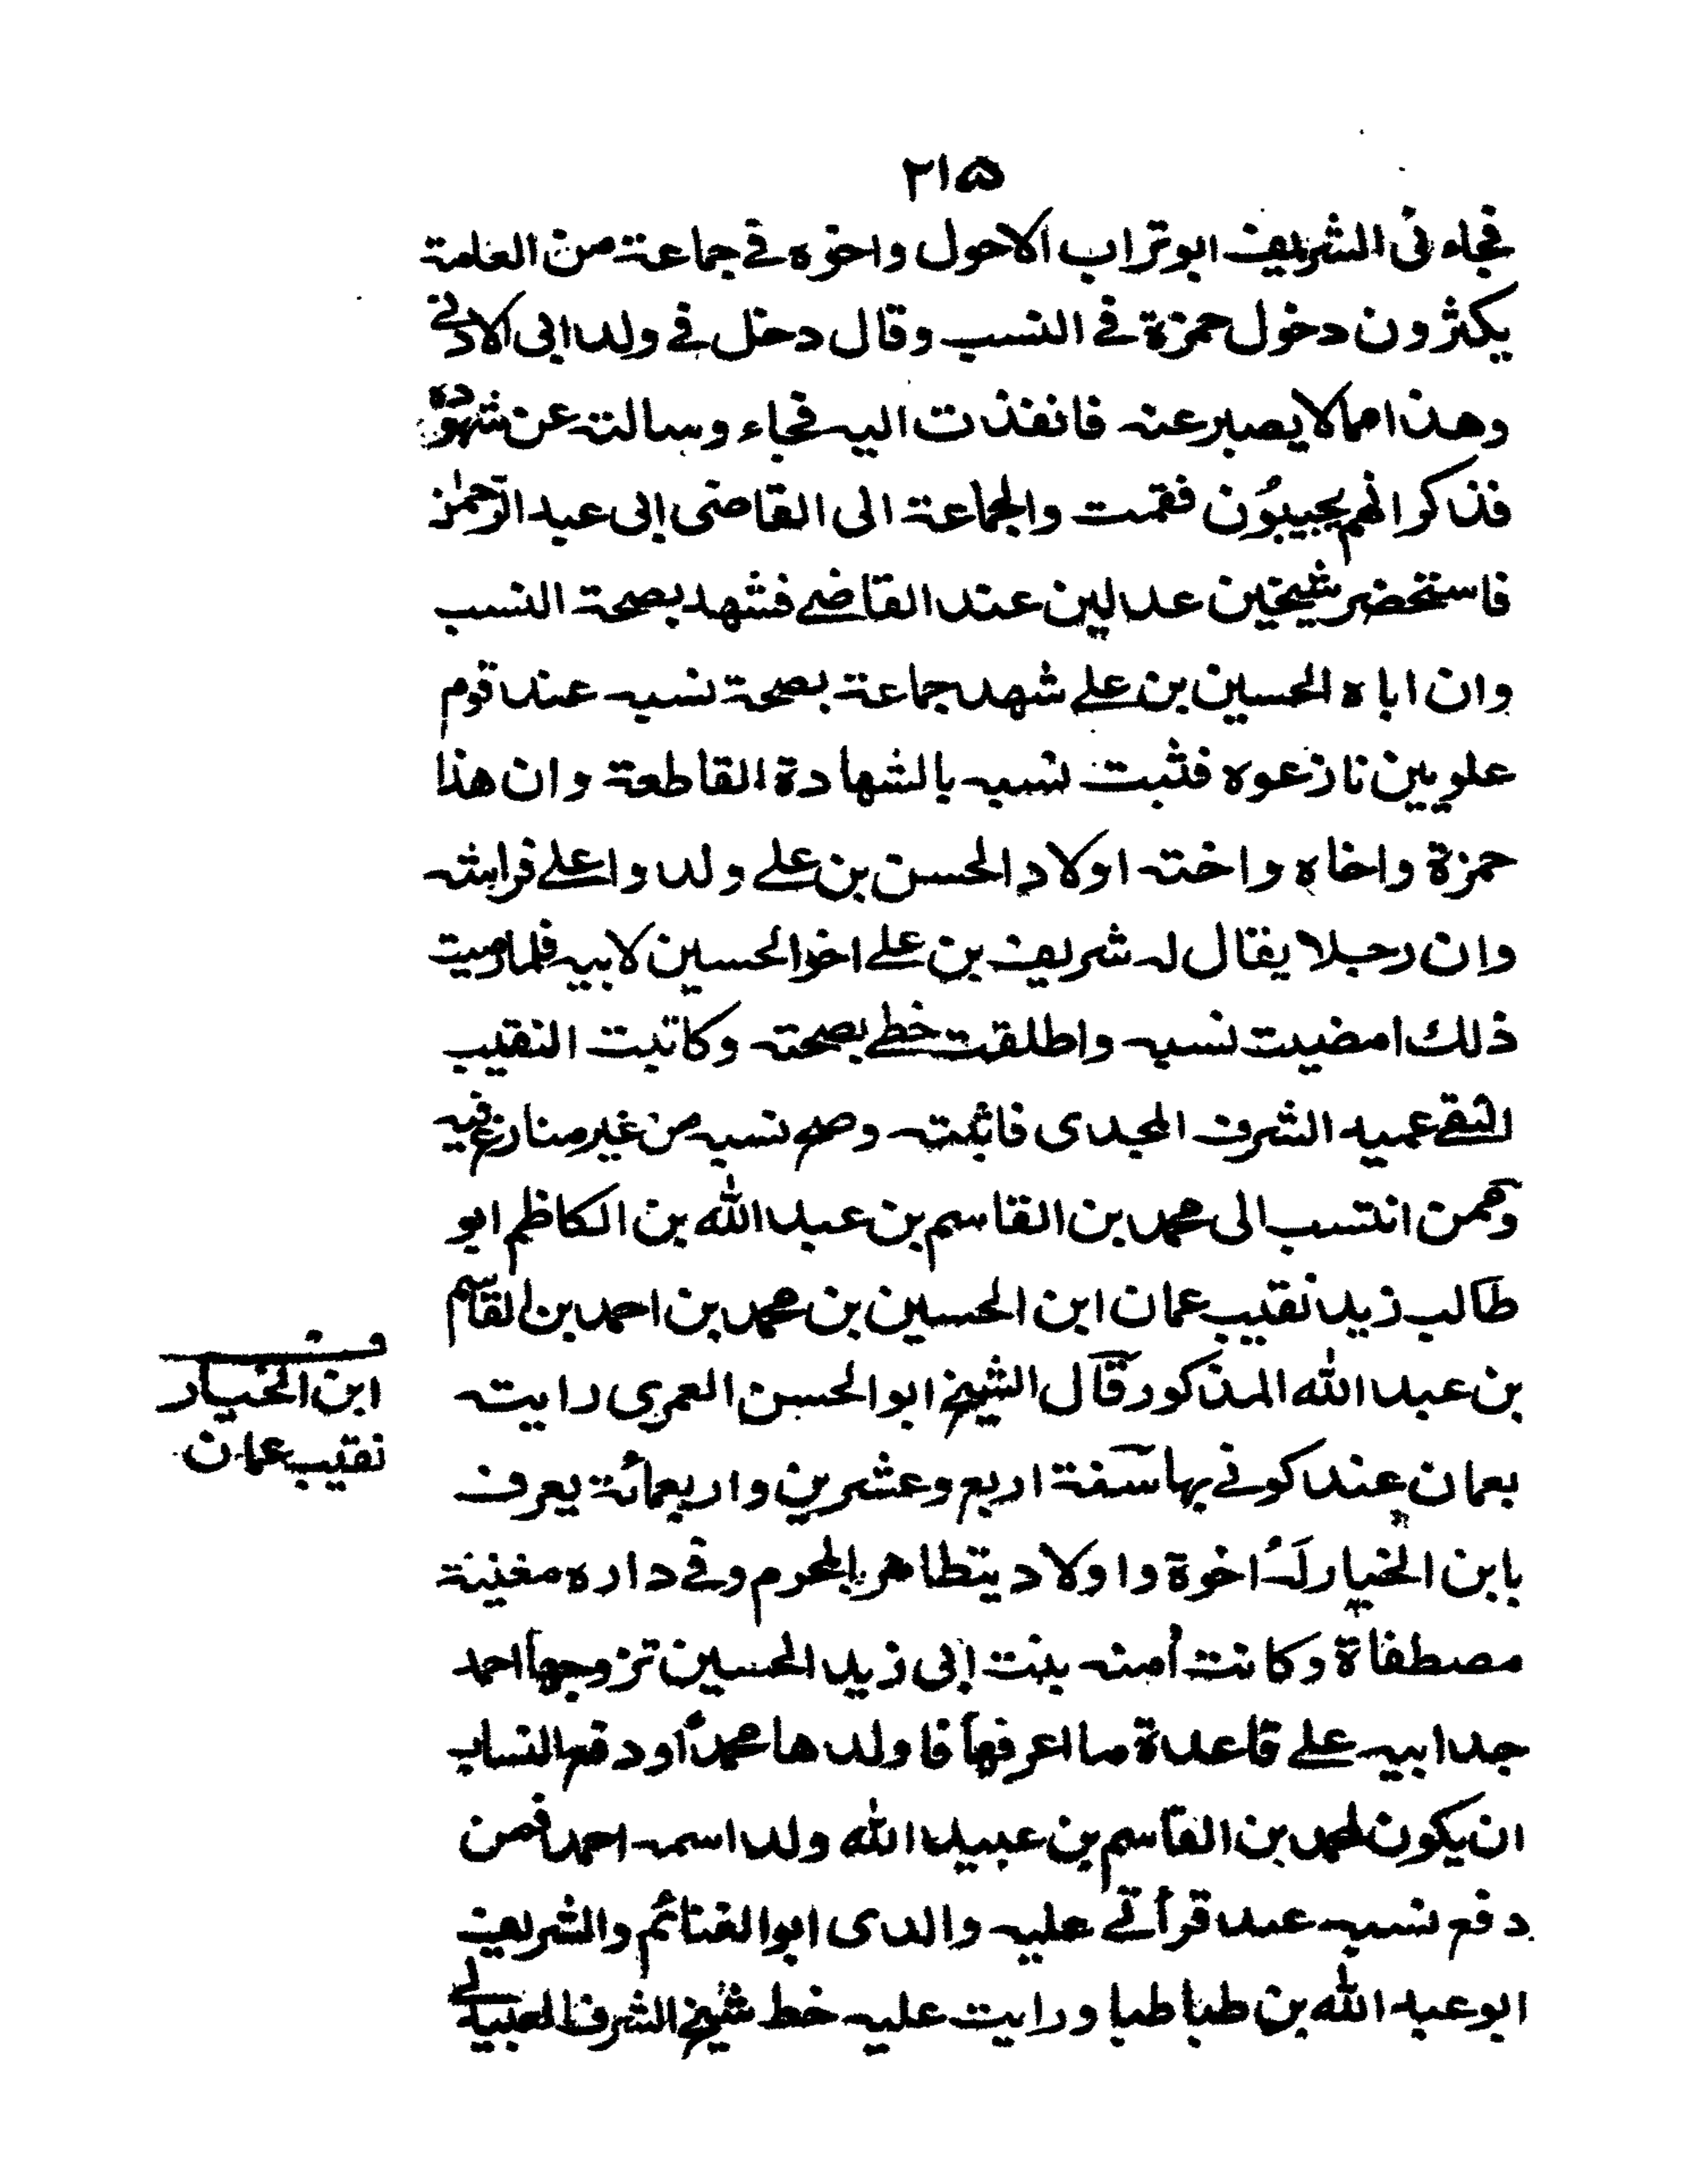 ۲۱۵
فجاءنى الشريف ابوتراب الاحول واخوه فے جماعة من العلمة
يكثرون دخول حمزة فے النسب وقال دخل فے ولد ابى الادنے
وهذا مما لا يصبر عنه فانفذت اليه فجاء وسالته عن شهوده
فذاكر انهم يجيبون فقمت والجماعة الى القاضى ابى عبد الرحمن
فاستحضر شيخين عدلين عند القاضے فشهد بصحة النسب
وان اباه الحسين بن علے شهد جماعة بصحة نسبه عند قوم
علويين نازعوه فثبت نسبه بالشهادة القاطعة وان هذا
حمزة واخاه واخته اولاد الحسن بن علے ولدوا علے فراشه
وان رجلا يقال له شريف بن علے اخو الحسين لابيه فلما رميت
ذلك امضيت نسبه واطلقت خطے بصحته وكاتبت النقيب
التقے عميد الشرف المجدى فاثبته وصح نسبه من غير منازع فيه
وممن انتسب الى محمد بن القاسم بن عبد الله بن الكاظم ابو
طالب زيد نقيب عمان ابن الحسين بن محمد بن احمد بن القاسم
بن عبد الله المذكور قال الشيخ ابو الحسن العمرى رايته
بعمان عند كونے بها سنة اربع وعشرين واربعمائة يعرف
بابن الخيار له اخوة واولاد يتظاهر بالمحرم وفے داره مغنية
مصطفاة وكانت أمنه بنت ابى زيد الحسين تزوجها احمد
جد ابيه علے قاعدة ما اعرفها فاولدها محمدًا ودفع النساب
ان يكون لمحمد بن القاسم بن عبيد الله ولد اسمه احمد فمن
دفع نسبه عند قرأتے عليه والدى ابو الغنائم والشريف
ابو عبد الله بن طباطبا ورايت عليه خط شيخ الشرف العبيدلے
ابن الخيار
نقيب عمان